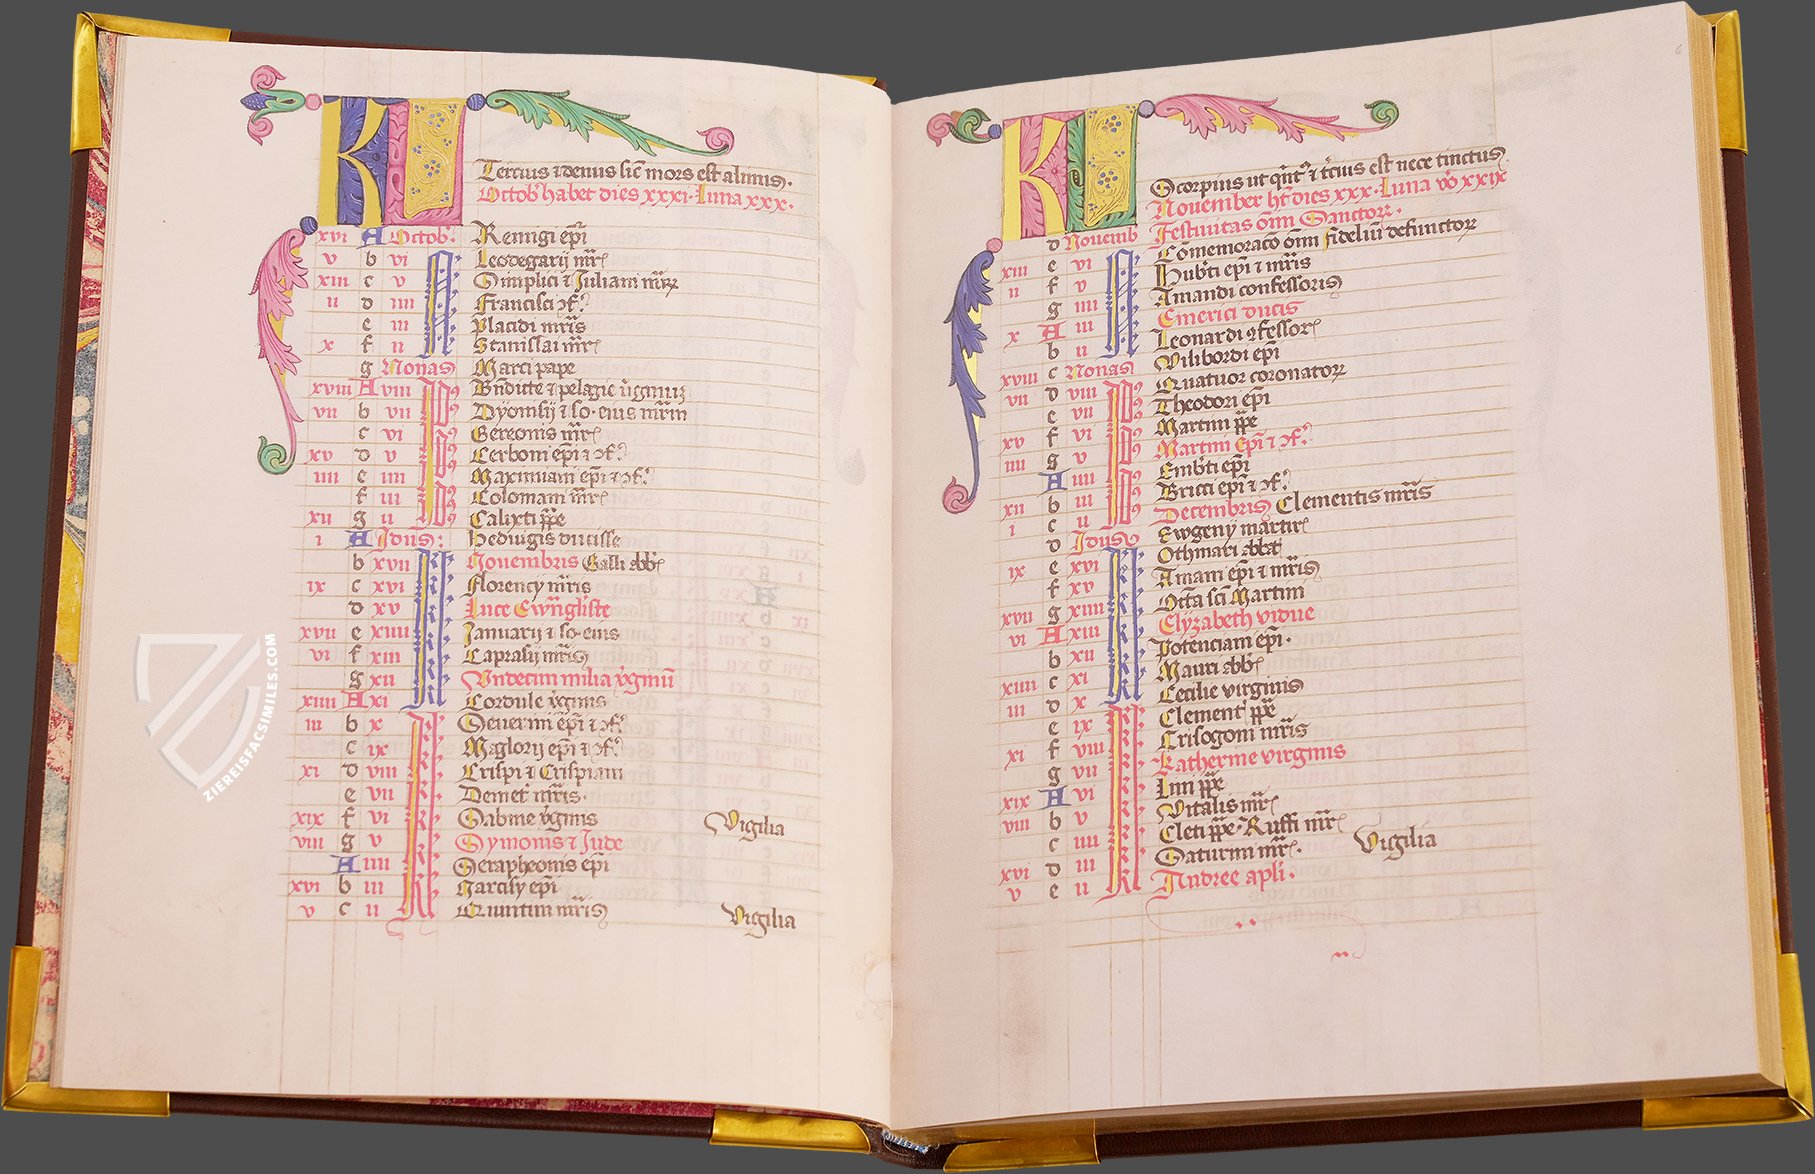 KL
Tercius ⁊ denus sic̄ mors est alienus.
Octob' habet dies xxxi. Luna xxx.
xvi A Octob. Remigi ep̄i
v b vi N Leodegarij mr̄
xiii c v Simplici ⁊ Juliani mr̄
ii d iiii Francisci ɔf.
e iii Placidi mr̄is
x f ii Stanislai mr̄
g Nonas Marci pape
xviii A viii Idus Bn̄dicte ⁊ pelagie v̓ginum
vii b vii Dyonisij ⁊ so. eius mr̄m
c vi Gereonis mr̄
xv d v Cerboni ep̄i ⁊ ɔf.
iiii e iiii Maximiani ep̄i ⁊ ɔf.
f iii Colomani mr̄
xii g ii Calixti pp̄e
i A Idus: Hedwigis ducisse
b xvii K Nouembris Galli abb̄
ix c xvi Florency mr̄is
d xv Luce Ewn̄gliste
xvii e xiiii Januarij ⁊ so. eius
vi f xiii Caprasij mr̄is
g xii Undecim milia v̓ginū
xiiii A xi Cordule v̓ginis
iii b x K Seuerini ep̄i ⁊ ɔf.
c ix Maglorij ep̄i ⁊ ɔf.
xi d viii Crispi ⁊ Crispiani
e vii Demet' mr̄is.
xix f vi Sabine v̓ginis Vigilia
viii g v Symonis ⁊ Jude
A iiii Serapheonis ep̄i
xvi b iii Narcisy ep̄i
v c ii Quintini mr̄is Vigilia
6
KL
Scorpius ut qn̄t' ⁊ t'cius est nece tinctus
Nouember ht̄ dies xxx. Luna v̊o xxix
d Nouemb Festiuitas om̄ Sanctorꝝ.
xiii e vi N Cōmemoracō om̄ fidelū defunctorꝝ
ii f v Hub'ti ep̄i ⁊ mr̄is
g iiii Amandi confessoris
x A iii Emerici ducis
b ii Leonardi ɔfessor̄
xviii c Nonas Vilibordi ep̄i
vii d viii Idus Quatuor coronatorꝝ
e vii Theodori ep̄i
xv f vi Martini pp̄e
iiii g v Martini Ep̄i ⁊ ɔf.
A iiii Emb'ti ep̄i
xii b iii Bricci ep̄i ⁊ ɔf.
i c ii Decembris Clementis mr̄is
d Idus Ewgenij martir̄
ix e xvi K Othmari abbat̄
f xv Aniani ep̄i ⁊ mr̄is
xvii g xiiii Octa sc̄i Martini
vi A xiii Elyzabeth vidue
b xii Potenciani ep̄i.
xiiii c xi Mauri abb̄
iii d x Cecilie virginis
e ix K Clement' pp̄e
xi f viii Crisogoni mr̄is
g vii Katherine virginis
xix A vi Lini pp̄e
viii b v Vitalis mr̄
c iiii Cleti pp̄e. Ruffi mr̄
xvi d iii Saturnini mr̄. Vigilia
v e ii Andree apli.
ZIEREISFACSIMILES.COM